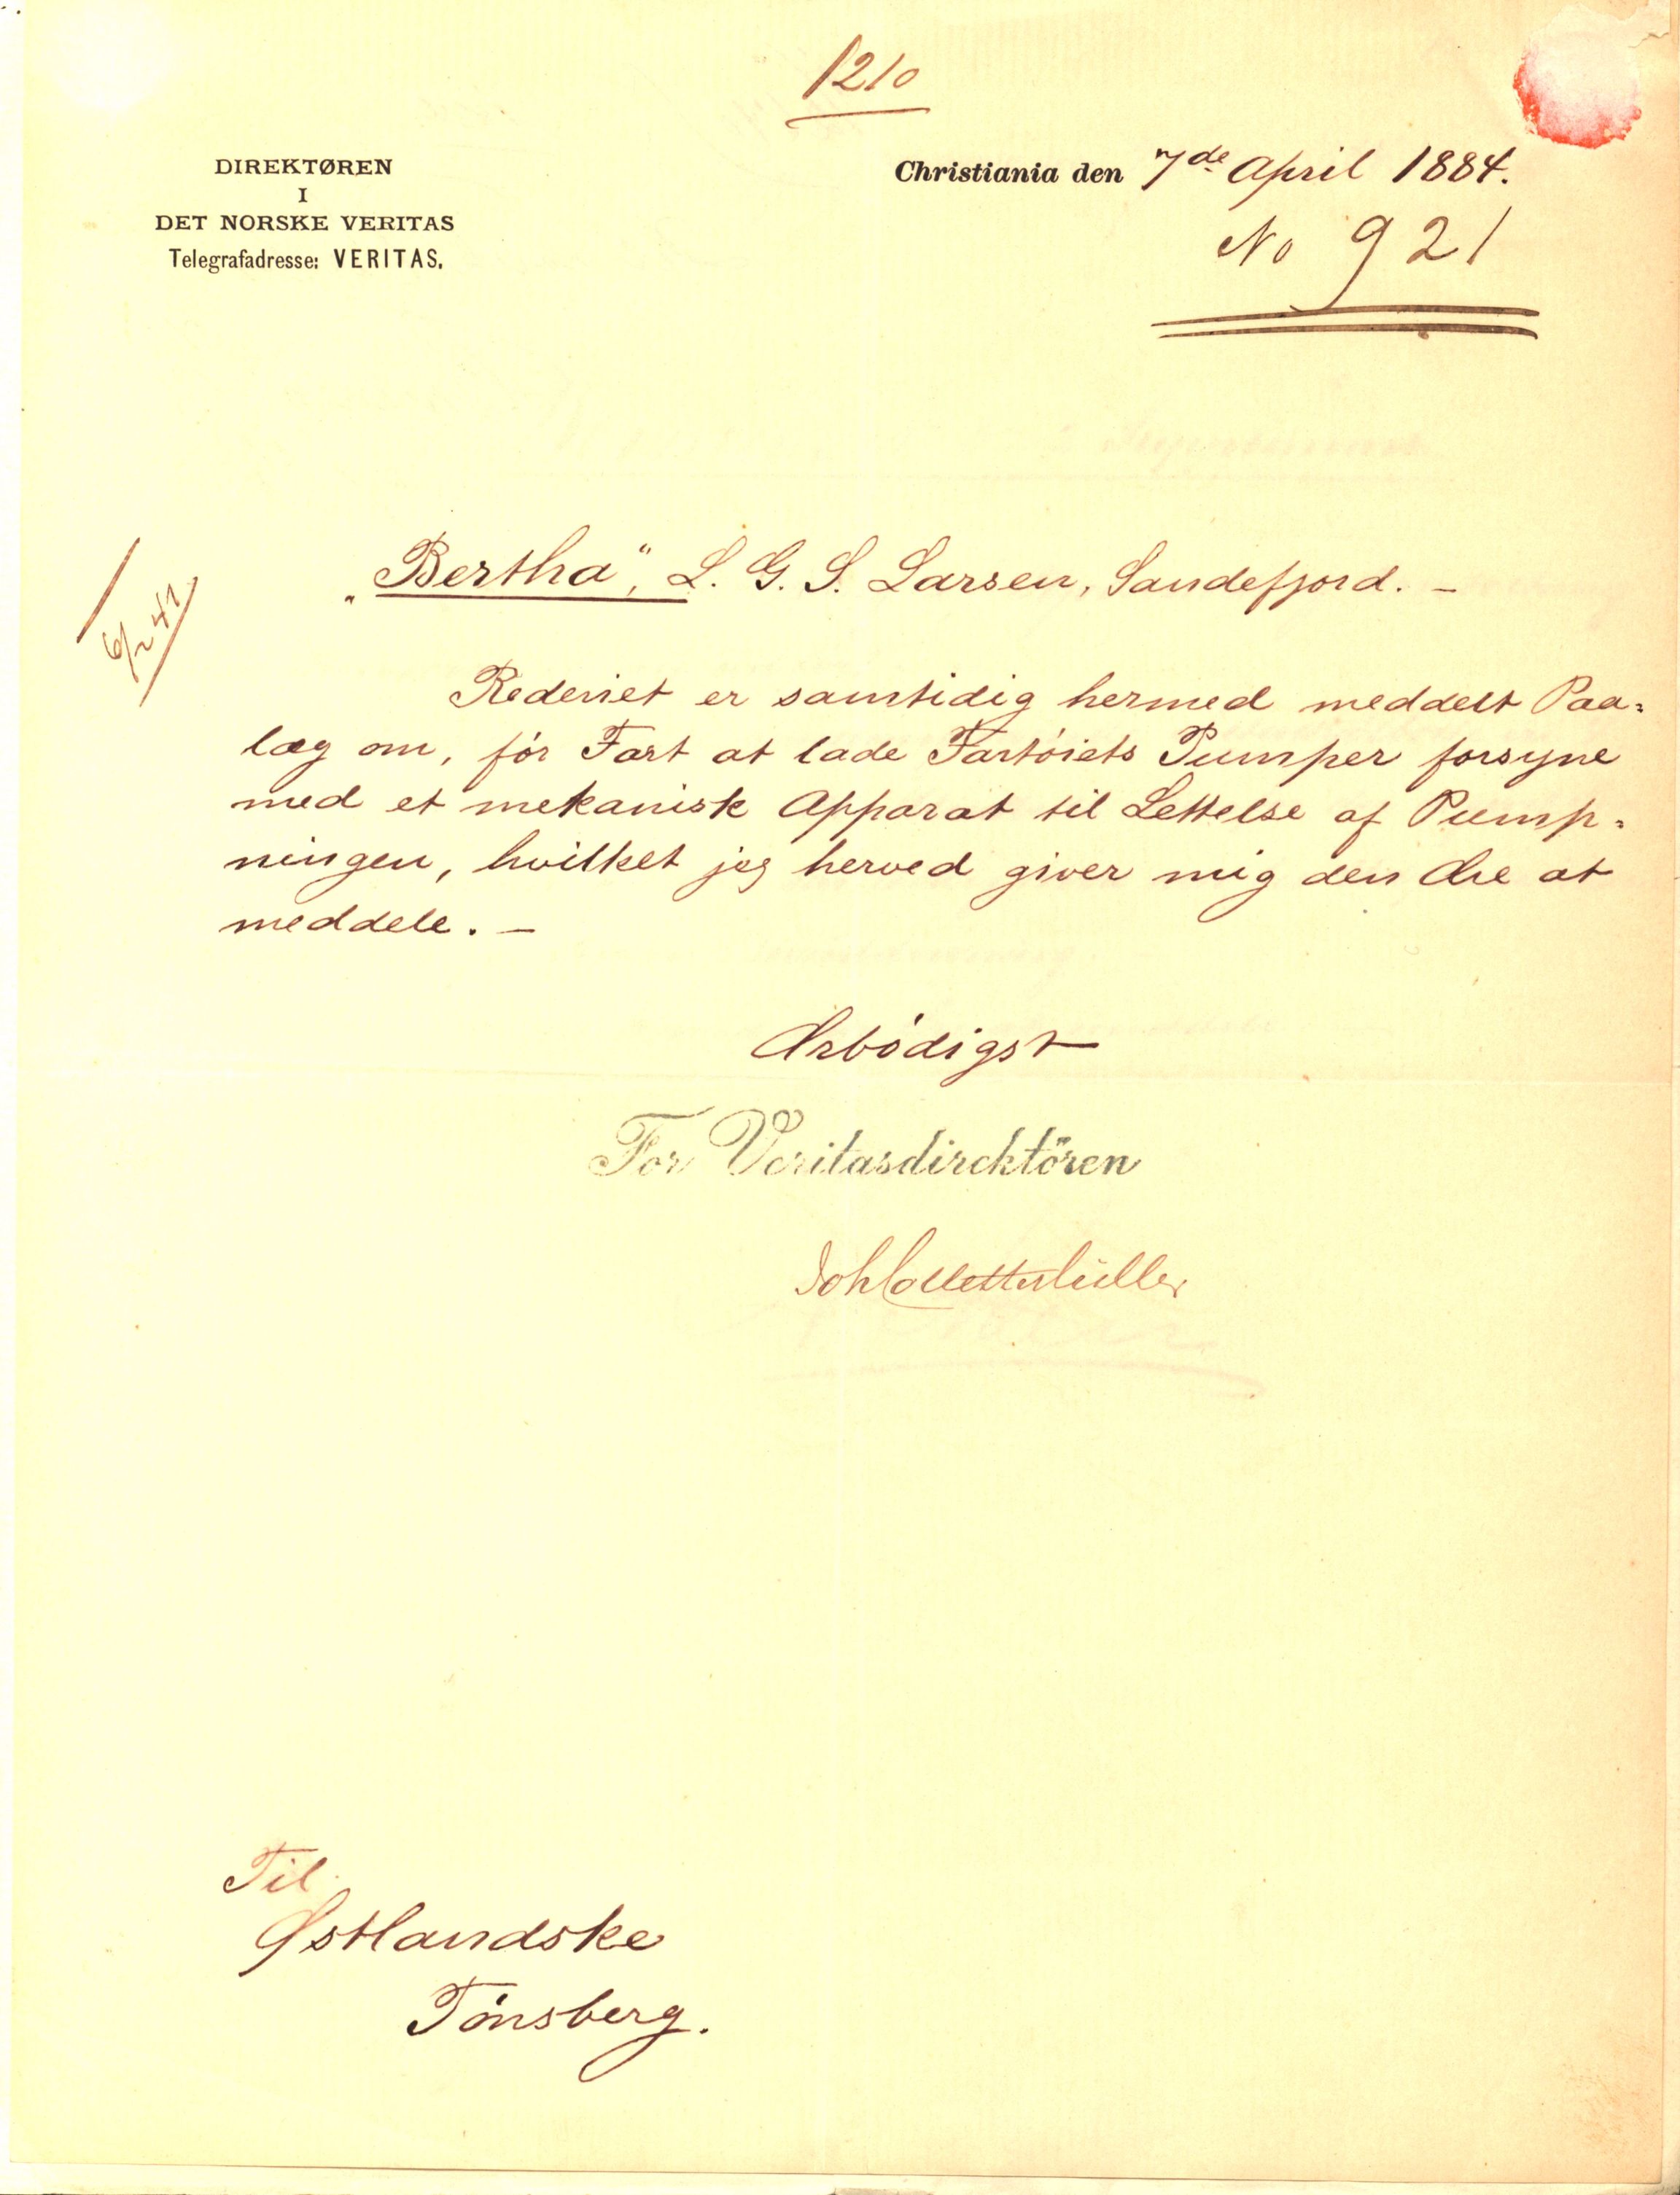 1210
DIREKTØREN
I
DET NORSKE VERITAS
Telegrafadresse: VERITAS.
Christiania den 7de April 1884.
No 921
„Bertha“, L. G. S. Larsen, Sandefjord. –
Rederiet er samtidig hermed meddelt Paa=
læg om, før Fart at lade Fartøiets Pumper forsyne
med et mekanisk Apparat til Lettelse af Pump=
ningen, hvilket jeg herved giver mig den Ære at
meddele. –
Ærbødigst
For Veritasdirektören
Joh Collett Müller
Til
Østlandske
Tønsberg.